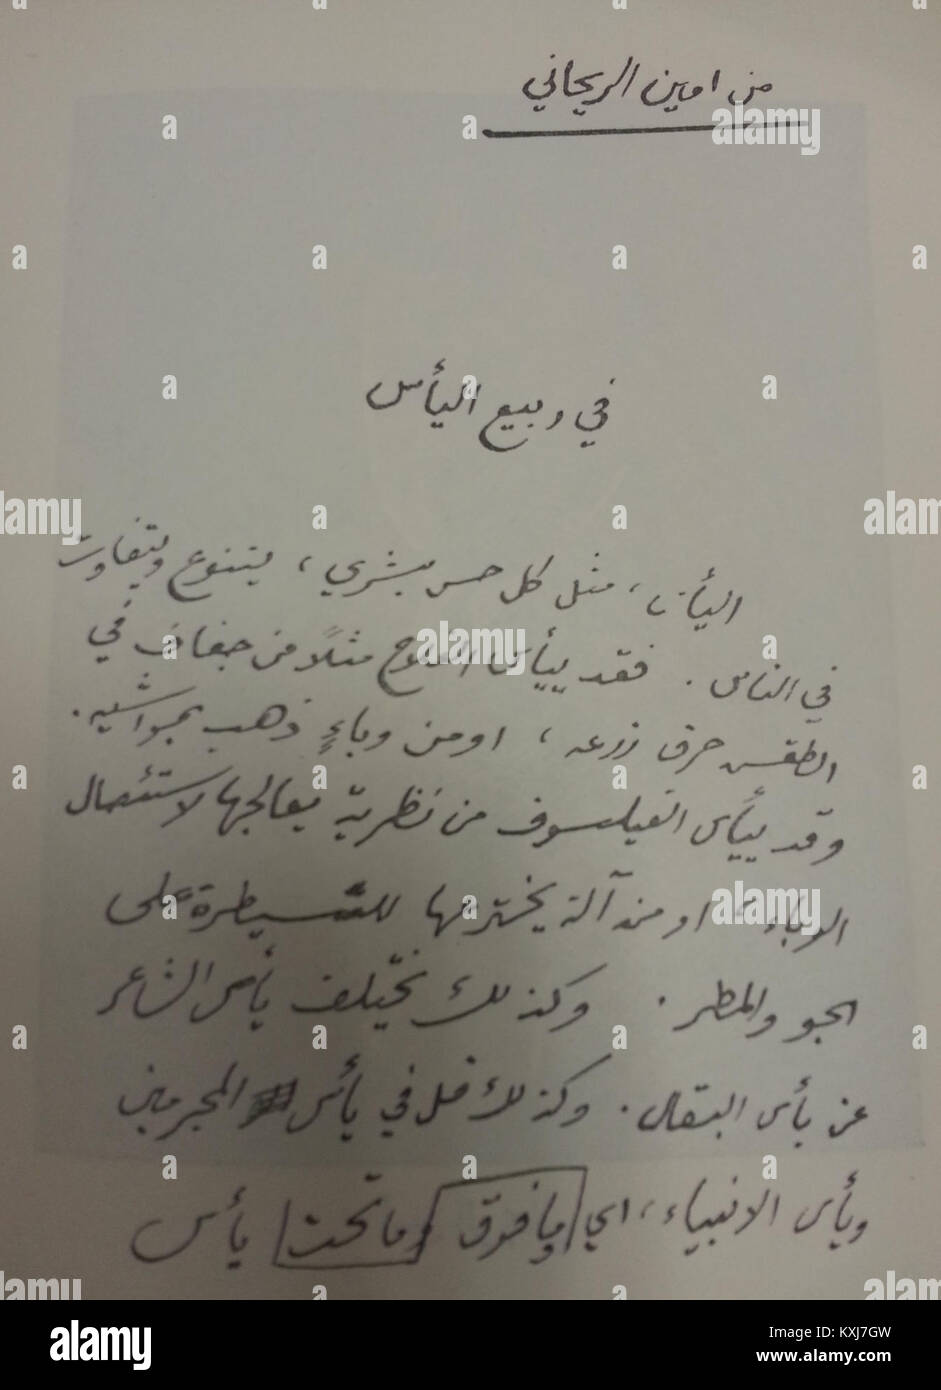 من امين الريحاني
في ربيع اليأس
اليأس، مثل كل حس بشري، يتنوع ويتفاوت
في الناس. فقد ييأس الفلاح مثلاً من جفاف في
الطقس حرق زرعه، او من وباءٍ ذهب بمواشيه.
وقد ييأس الفيلسوف من نظرية يعالجها لاستئصال
الوباء، او من آلة يخترعها للسيطرة على
الجو والمطر. وكذلك يختلف يأس الشاعر
عن يأس البقال. وكذلك قل في يأس المجرمين
ويأس الانبياء، اي ما فوق وما تحت يأس
alamy
alamy
Image ID: KXJ7GW
www.alamy.com